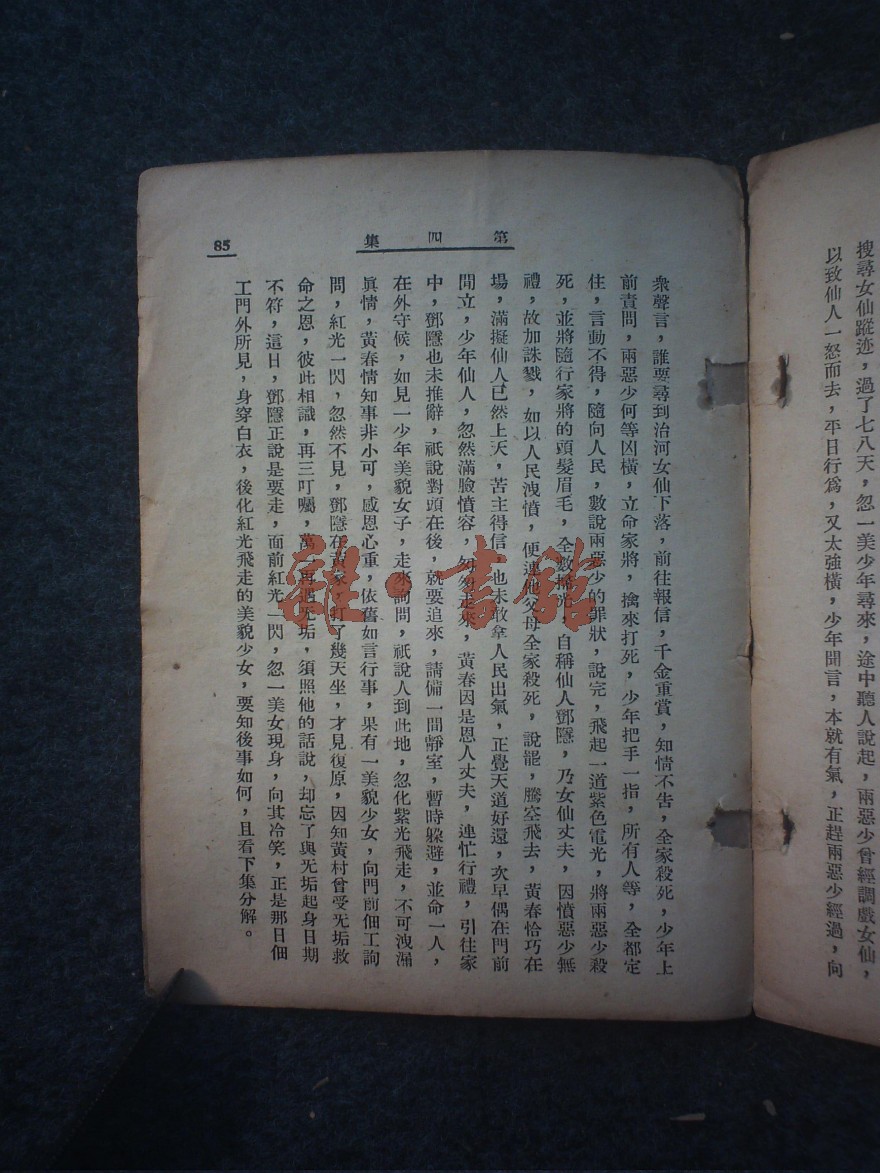 搜尋女仙蹤迹，過了七八天，忽一美少年尋來，途中聽人說起，兩惡少曾經調戲女仙，
以致仙人一怒而去，平日行為，又太強橫，少年聞言，本就有氣，正趕兩惡少經過，向
第四集
85
衆聲言，誰要尋到治河女仙下落，前往報信，千金重賞，知情不告，全家殺死，少年上
前責問，兩惡少何等凶橫，立命家將，擒來打死，少年把手一指，所有人等，全都定
住，言動不得，隨向人民，數說兩惡少的罪狀，說完，飛起一道紫色電光，將兩惡少殺
死，並將隨行家將的頭髮眉毛，全數掃光，自稱仙人鄧隱，乃女仙丈夫，因憤惡少無
禮，故加誅戮，如以人民洩憤，便連他父母全家殺死，說罷，騰空飛去，黃春恰巧在
場，滿擬仙人已然上天，苦主得信，也未敢拿人民出氣，正覺天道好還，次早偶在門前
閒立，少年仙人，忽然滿臉憤容，匆匆走來，黃春因是恩人丈夫，連忙行禮，引往家
中，鄧隱也未推辭，祇說對頭在後，就要追來，請備一間靜室，暫時躲避，並命一人，
在外守候，如見一少年美貌女子，走來詢問，祇說人到此地，忽化紫光飛走，不可洩漏
眞情，黃春情知事非小可，感恩心重，依舊如言行事，果有一美貌少女，向門前佃工詢
問，紅光一閃，忽然不見，鄧隱在黃家，打了幾天坐，才見復原，因知黃村曾受无垢救
命之恩，彼此相識，再三叮囑，萬一再遇无垢，須照他的話說，却忘了與无垢起身日期
不符，這日，鄧隱正說是要走，面前紅光一閃，忽一美女現身，向其冷笑，正是那日佃
工門外所見，身穿白衣，後化紅光飛走的美貌少女，要知後事如何，且看下集分解。
雜·書館